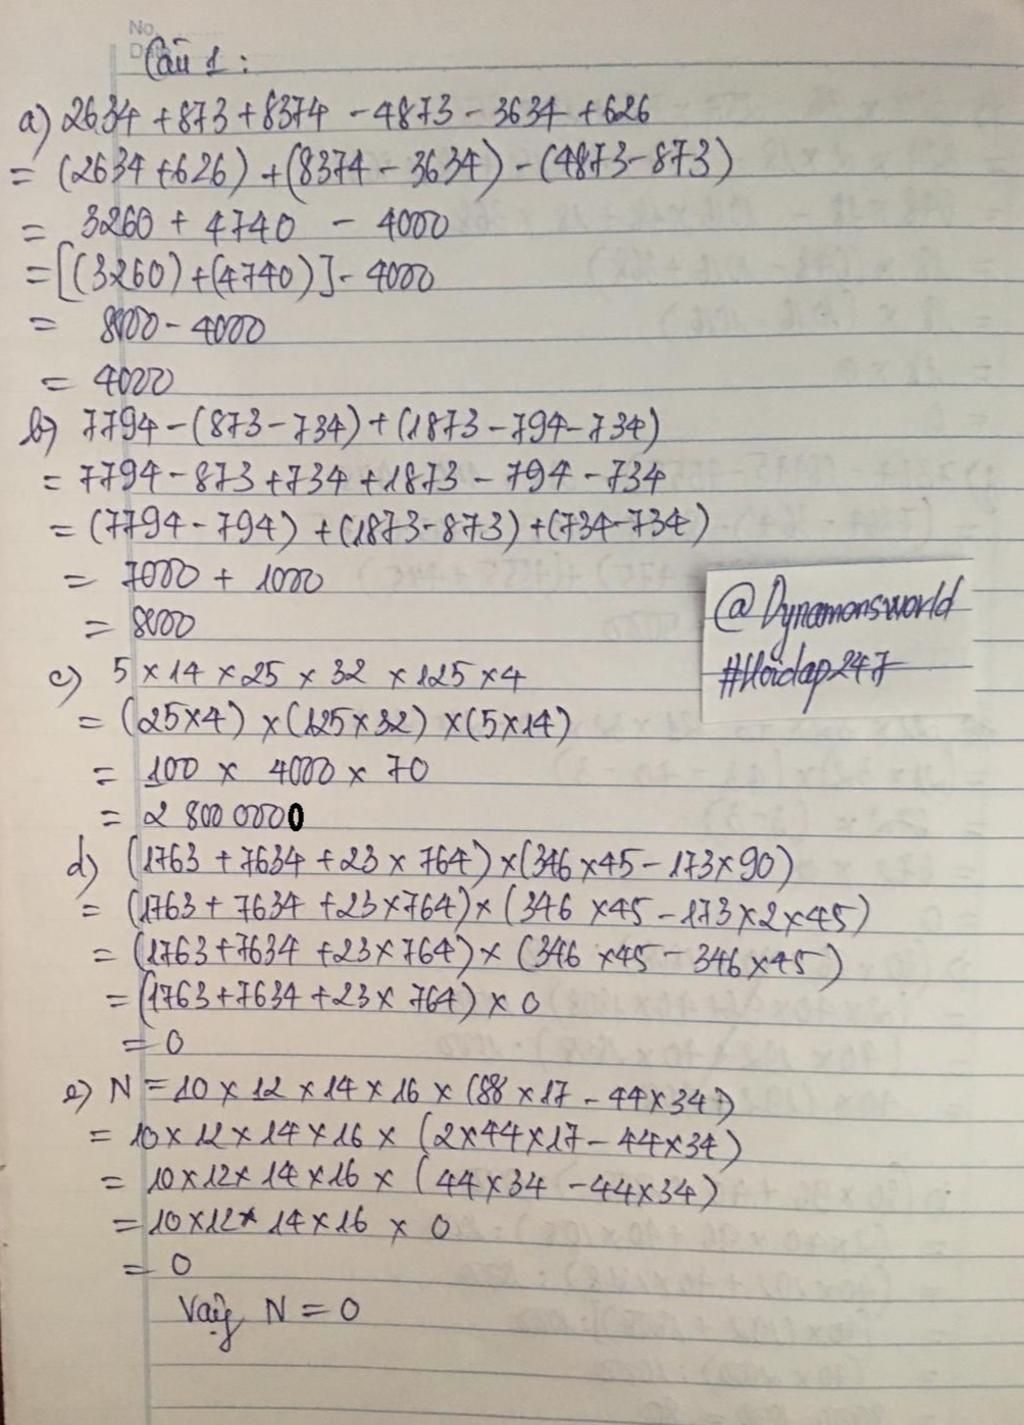 No.
Câu 1 :
a) 2634 + 873 + 8374 - 4873 - 3634 + 626
= (2634 + 626) + (8374 - 3634) - (4873 - 873)
= 3260 + 4740 - 4000
= [(3260) + (4740)] - 4000
= 8000 - 4000
= 4000
b) 7794 - (873 - 734) + (1873 - 794 - 734)
= 7794 - 873 + 734 + 1873 - 794 - 734
= (7794 - 794) + (1873 - 873) + (734 - 734)
= 7000 + 1000
= 8000
@Dynamonsworld
#Hoidap247
c) 5 × 14 × 25 × 32 × 125 × 4
= (25×4) × (125×32) × (5×14)
= 100 × 4000 × 70
= 2 800 0000
d) (1763 + 7634 + 23 × 764) × (346 × 45 - 173 × 90)
= (1763 + 7634 + 23×764) × (346 × 45 - 173 × 2 × 45)
= (1763 + 7634 + 23×764) × (346 × 45 - 346 × 45)
= (1763 + 7634 + 23 × 764) × 0
= 0
e) N = 10 × 12 × 14 × 16 × (88 × 17 - 44 × 34)
= 10 × 12 × 14 × 16 × (2×44×17 - 44×34)
= 10×12× 14×16 × (44×34 - 44×34)
= 10×12× 14×16 × 0
= 0
Vậy N = 0